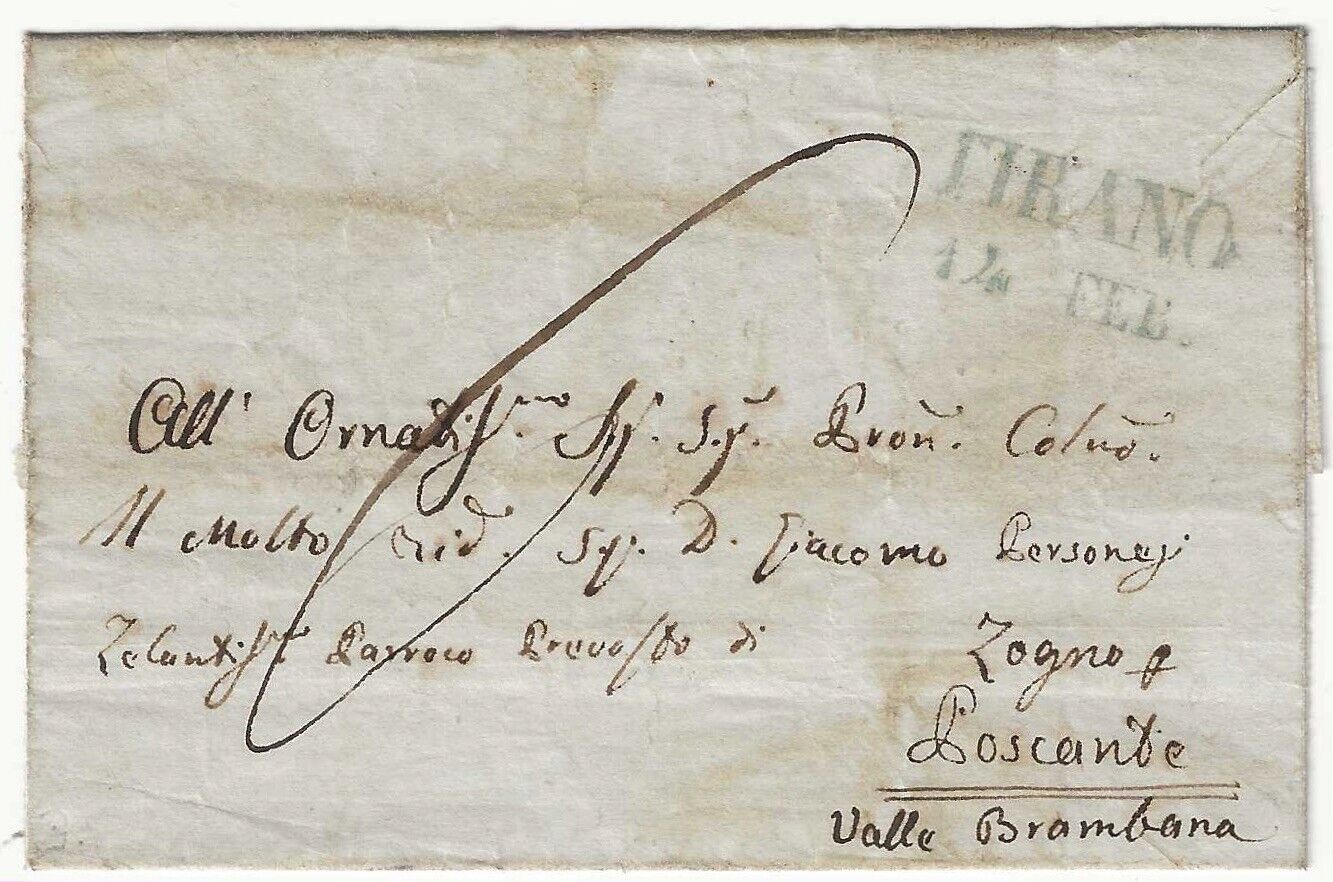 TIRANO
12 FEB.
All' Ornatiss.mo Sig. Pron. Colmo.
Il Molto Rid. Sig. D. Giacomo Personej
Zelantiss.mo Parroco Prevosto di Zogno p
Poscante
Valle Brambana